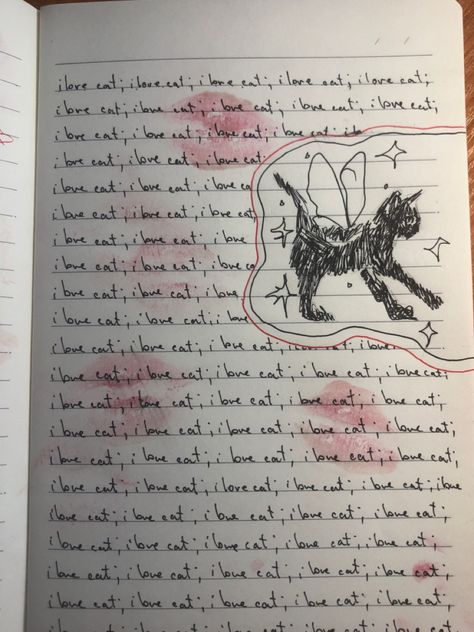 i love cat; i love cat; i love cat; i love cat; i love cat;
i love cat; i love cat; i love cat; i love cat; i love cat;
i love cat; i love cat; i love cat; i love cat
i love cat; i love cat; i love cat;
i love cat; i love cat; i love
i love cat; i love cat; i love cat
i love cat; i love cat; i love
i love cat; i love cat; i love
i love cat; i love cat; i love
i love cat; i love cat; i love
i love cat; i love cat; i love cat; i love cat; i love
i love cat; i love cat; i love cat; i love cat; i love cat;
i love cat; i love cat; i love cat; i love cat; i love cat;
i love cat; i love cat; i love cat; i love cat; i love cat;
i love cat; i love cat; i love cat; i love cat; i love cat;
i love cat; i love cat; i love cat; i love cat; i love cat; i love
i love cat; i love cat; i love cat; i love cat; i love cat;
i love cat; i love cat; i love cat; i love cat; i love cat;
i love cat; i love cat; i love cat; i love cat; i love cat;
i love cat; i love cat; i love cat; i love cat; i love cat;
i love cat; i love cat; i love cat; i love cat; i love cat;